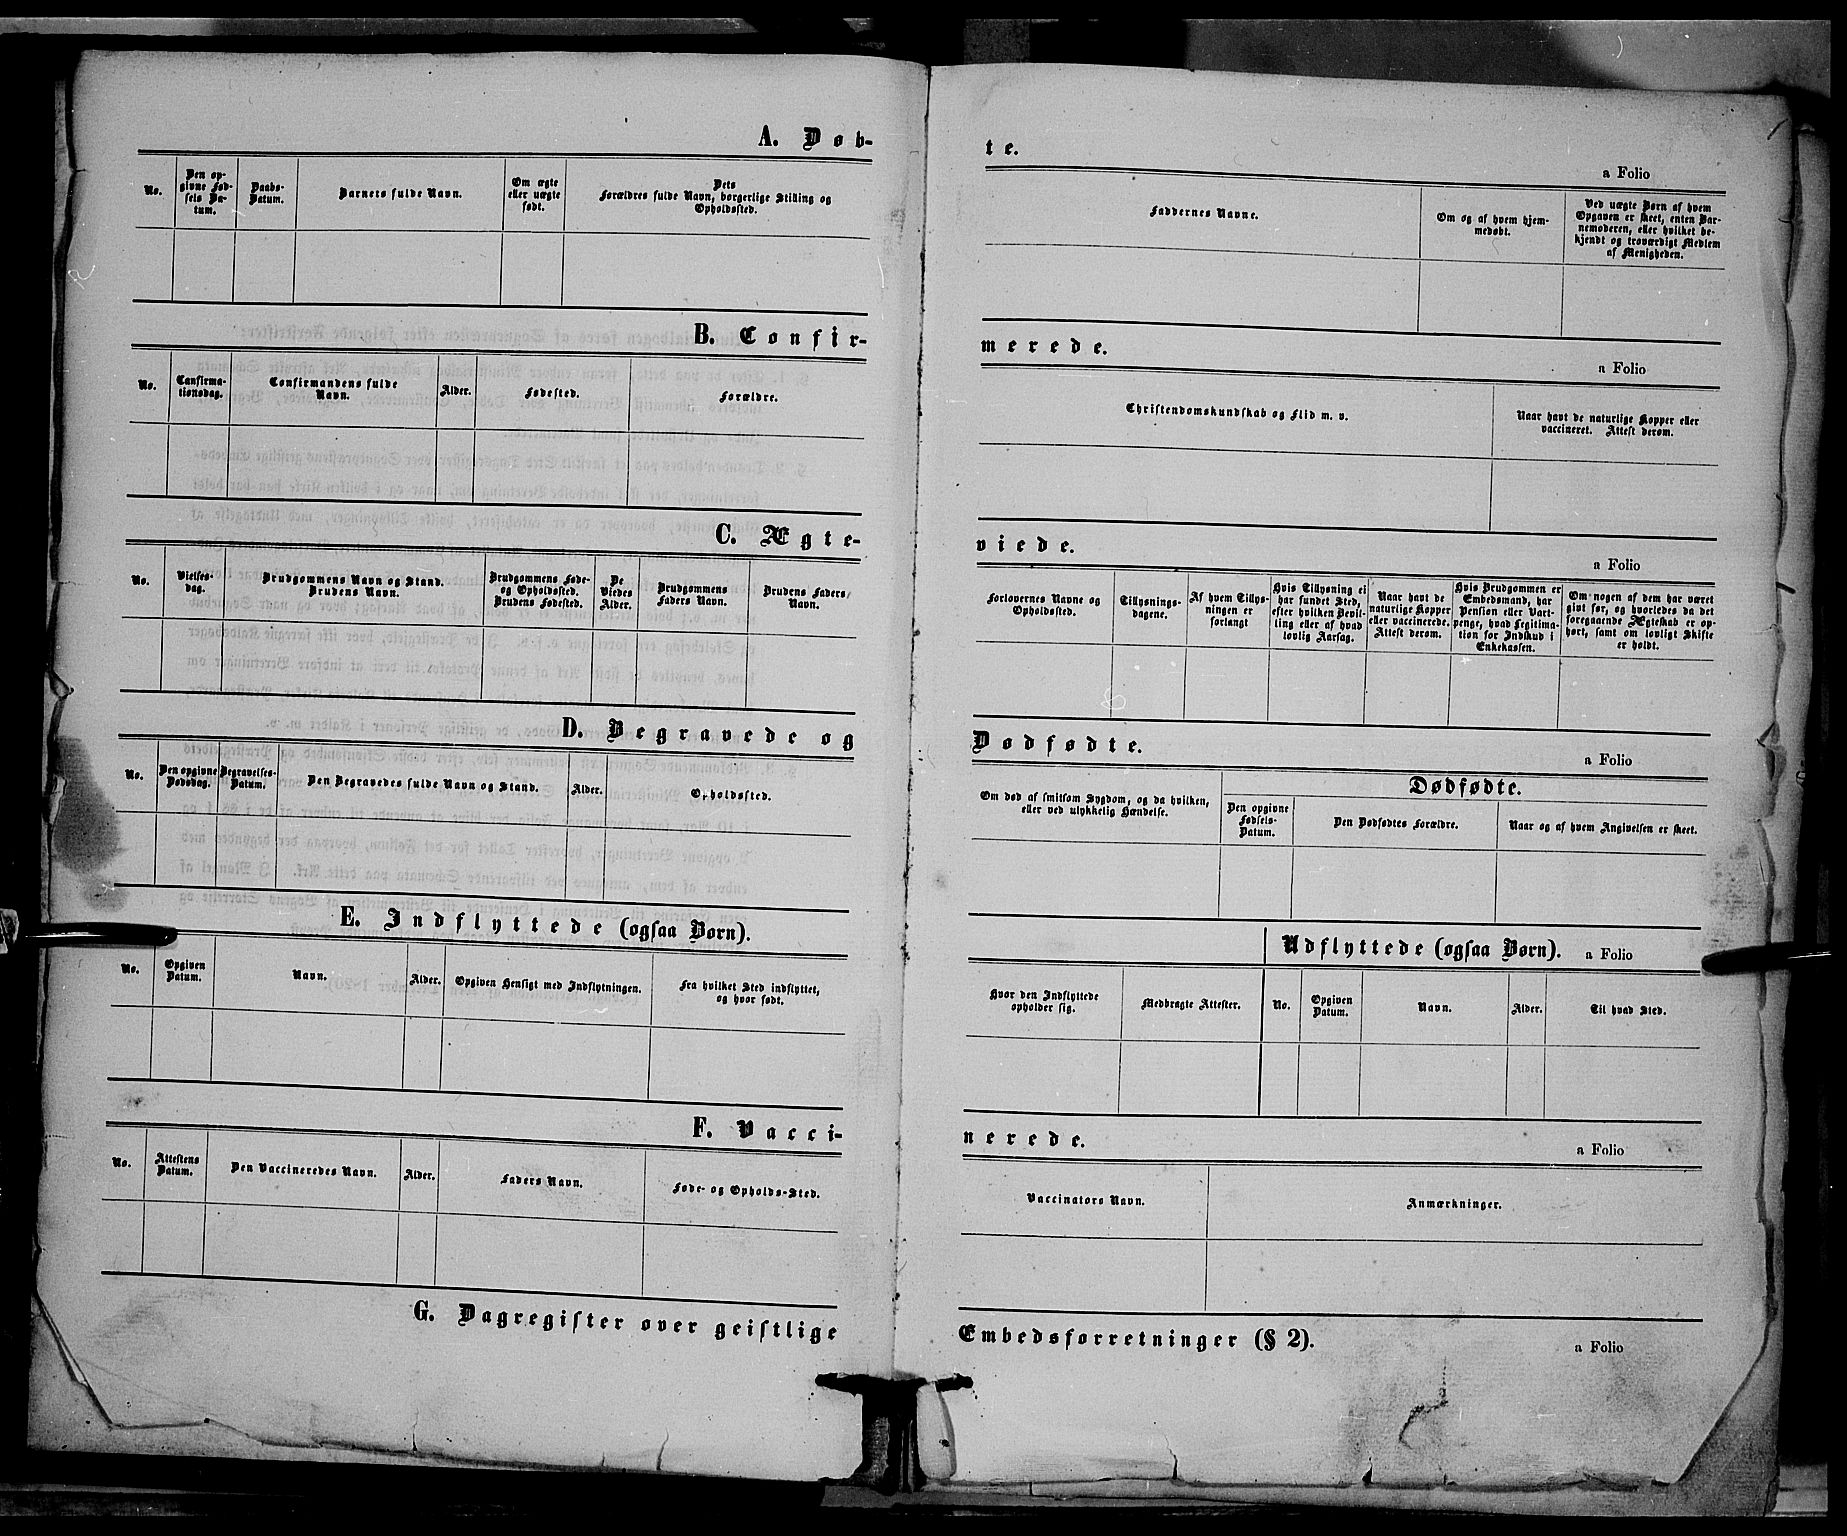 A. Døb-
No.
Den op-
givne Fød-
sels Da-
tum.
Daabs-
Datum.
Barnets fulde Navn.
Om ægte
eller uægte
født.
Dets
Forældres fulde Navn, borgerlige Stilling og
Opholdssted.
B. Confir-
No.
Confirma-
tionsdag.
Confirmandens fulde
Navn.
Alder.
Fødested.
Forældre.
C. Ægte-
No.
Vielses-
dag.
Brudgommens Navn og Stand.
Brudens Navn.
Brudgommens Føde-
og Opholdssted.
Brudens Fødested.
De
Viedes
Alder.
Brudgommens
Faders Navn.
Brudens Faders
Navn.
D. Begravede og
No.
Den opgivne
Dødsdag.
Begravelses-
Datum.
Den Begravedes fulde Navn og Stand.
Alder.
Opholdssted.
E. Indflyttede (ogsaa Børn).
No.
Opgiven
Datum.
Navn.
Alder.
Opgiven Hensigt med Indflytningen.
Fra hvilket Sted indflyttet,
og hvor født.
F. Vacci-
No.
Attestens
Datum.
Den Vaccineredes Navn.
Alder.
Faders Navn.
Føde- og Opholds-Sted.
G. Dagregister over geistlige
te.
a Folio
Faddernes Navne.
Om og af hvem hjem-
medøbt.
Ved uægte Børn af hvem
Opgaven er skeet, enten Bar-
nemoderen, eller hvilket be-
kjendt og troværdigt Medlem
af Menigheden.
merede.
a Folio
Christendomskundskab og Flid m. v.
Naar havt de naturlige Kopper eller
vaccineret. Attest derom.
viede.
a Folio
Forlovernes Navne og
Opholdssted.
Tillysnings-
dagene.
Af hvem Tillys-
ningen er
forlangt
Hvis Tillysning ei
har fundet Sted,
efter hvilken Bevil-
ling eller af hvad
lovlig Aarsag.
Naar havt de
naturlige Kopper
eller vaccinerede.
Attest derom.
Hvis Brudgommen er
Embedsmand, har
Pension eller Vart-
penge, hvad Legitima-
tion for Indskud i
Enkekassen.
Om nogen af dem har været
givt før, og hvorledes da det
foregaaende Ægteskab er op-
hørt, samt om lovligt Skifte
er holdt.
Dødfødte.
a Folio
Om død af smitsom Sygdom, og da hvilken,
eller ved ulykkelig Hændelse.
Dødfødte.
Den opgivne
Fødsels-
Datum.
Den Dødfødtes Forældre.
Naar og af hvem Angivelsen er skeet.
Udflyttede (ogsaa Børn).
a Folio
Hvor den Indflyttede
opholder sig.
Medbragte Attester.
No.
Opgiven
Datum.
Navn.
Alder.
Til hvad Sted.
nerede.
a Folio
Vaccinators Navn.
Anmærkninger.
Embedsforretninger (§ 2).
a Folio